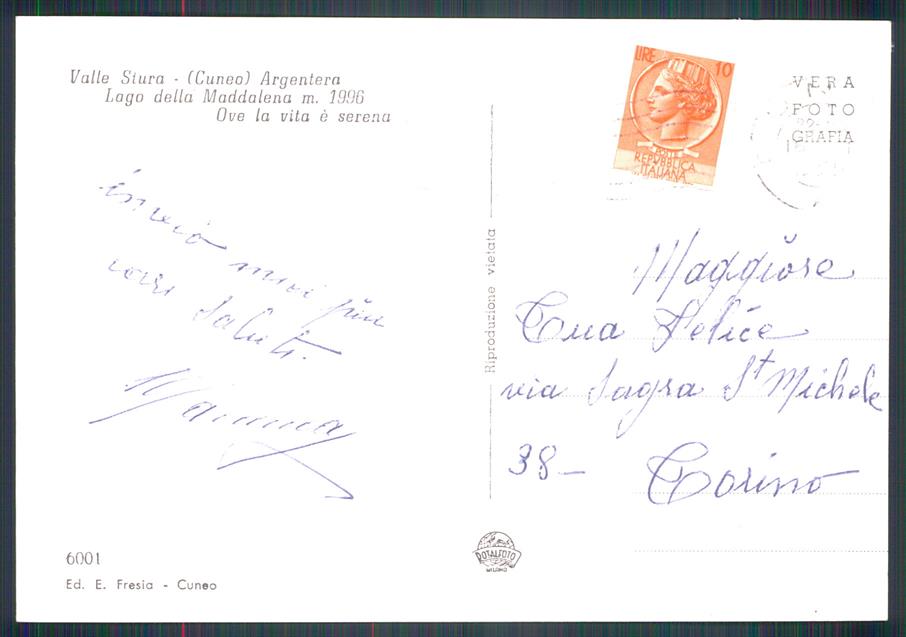 Valle Stura - (Cuneo) Argentera
Lago della Maddalena m. 1996
Ove la vita è serena
invio miei più
cari saluti.
Mamma
6001
Ed. E. Fresia - Cuneo
Riproduzione vietata
ROTALFOTO
MILANO
LIRE 10
POSTE
REPUBBLICA
ITALIANA
VERA
FOTO
GRAFIA
Maggiore
Cua Felice
via Sagra St Michele
38 - Torino